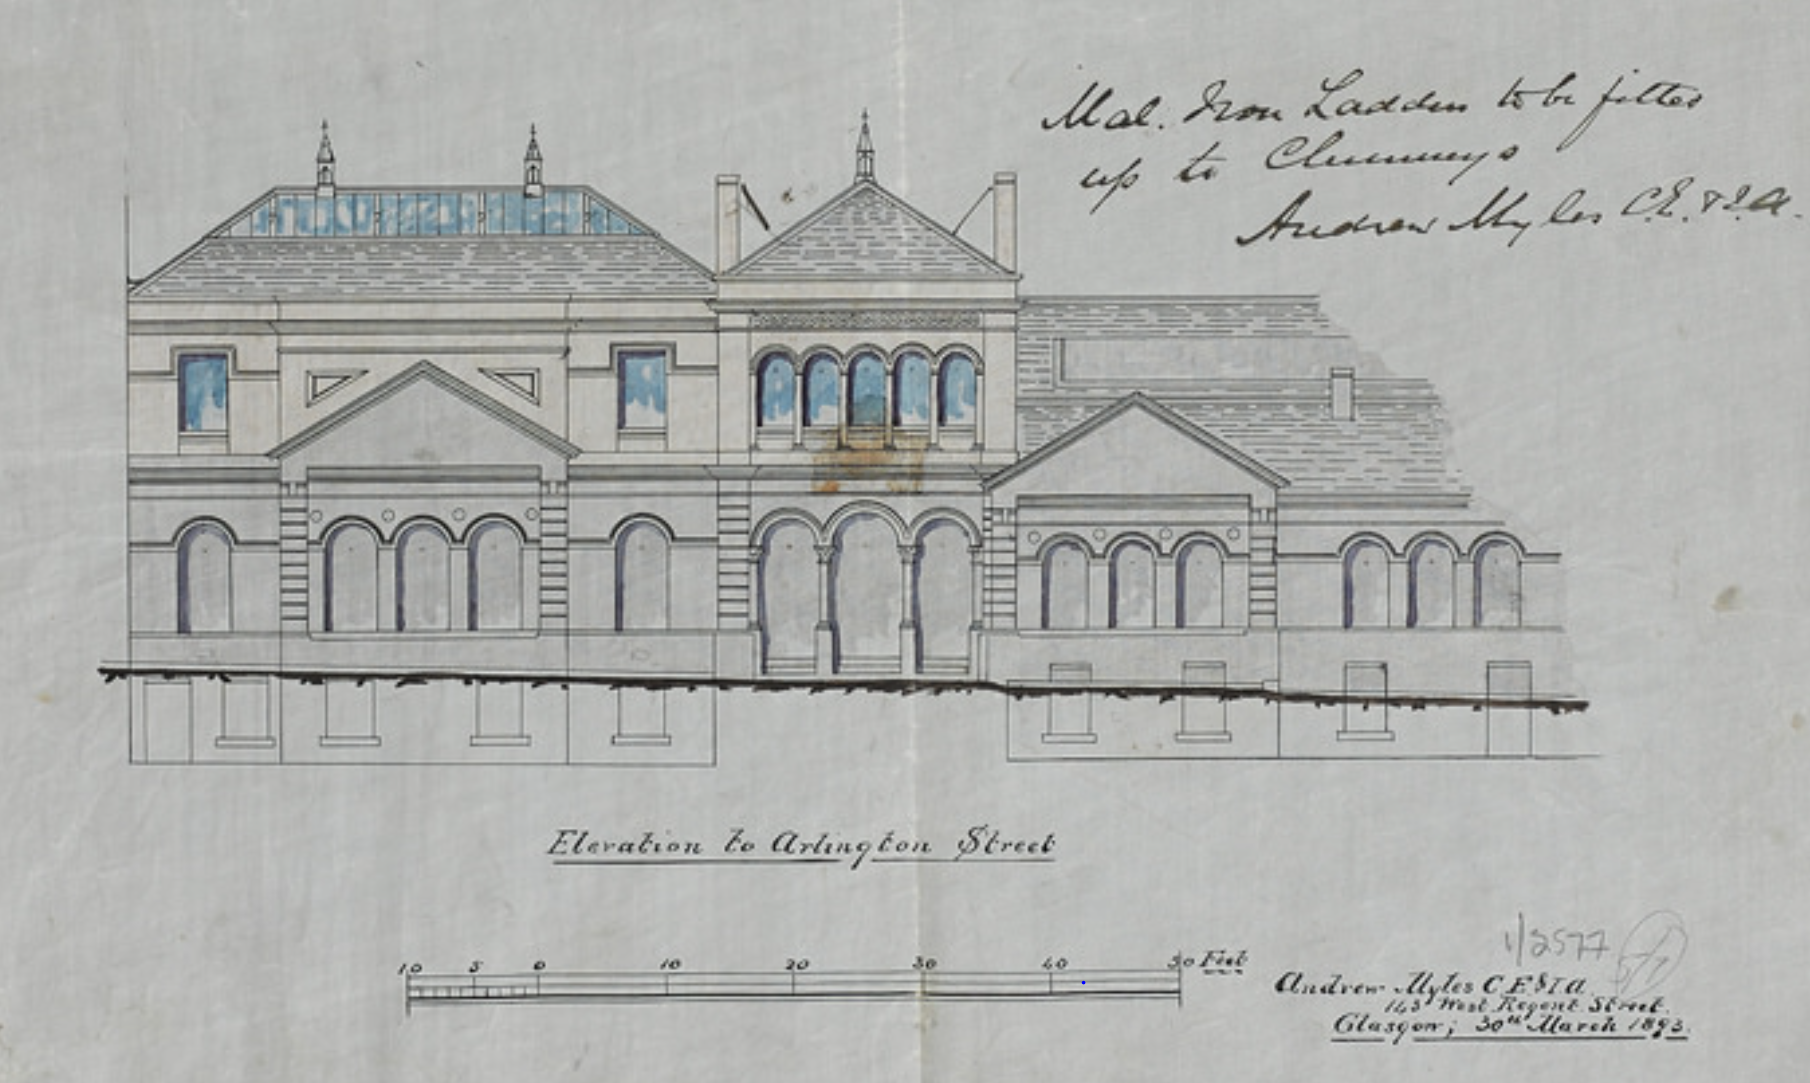 Mal. Iron Ladders to be fitted
up to Chimneys
Andrew Myles C.E. & I.A.
Elevation to Arlington Street
10 5 0 10 20 30 40 50 Feet
1/2577
Andrew Myles C.E & I.A.
143 West Regent Street.
Glasgow; 30th March 1893.